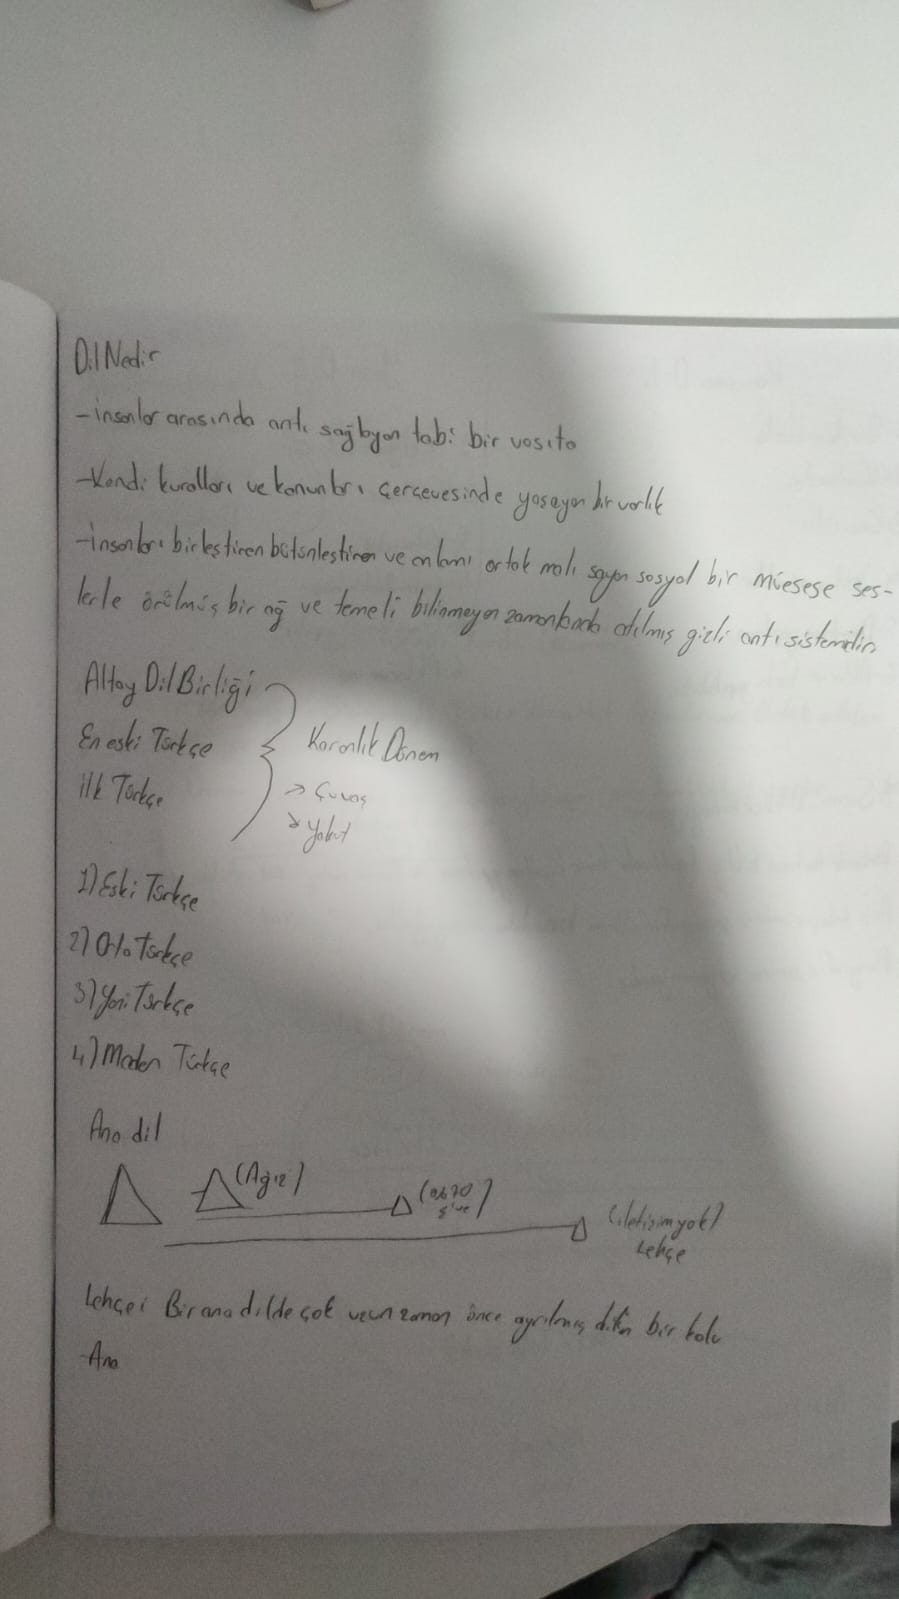 Dil Nedir
-insanlar arasında antı sağlayan tabi bir vasıta
-Kendi kuralları ve kanunları çerçevesinde yaşayan bir varlık
-insanları birleştiren bütünleştiren ve onları ortak malı sayan sosyal bir müesese ses-
lerle örülmüş bir ağ ve temeli bilinmeyen zamanlarda atılmış gizli antı sistemidir
Altay Dil Birliği
En eski Türkçe
ilk Türkçe
Karanlık Dönem
→ Çuvaş
→ Yakut
1) Eski Türkçe
2) Orta Türkçe
3) Yeni Türkçe
4) Modern Türkçe
Ana dil
(Ağız)
şive
(iletisim yok)
Lehçe
Lehçe: Bir ana dilde çok uzun zaman önce ayrılmış dilin bir kolu
-Ana